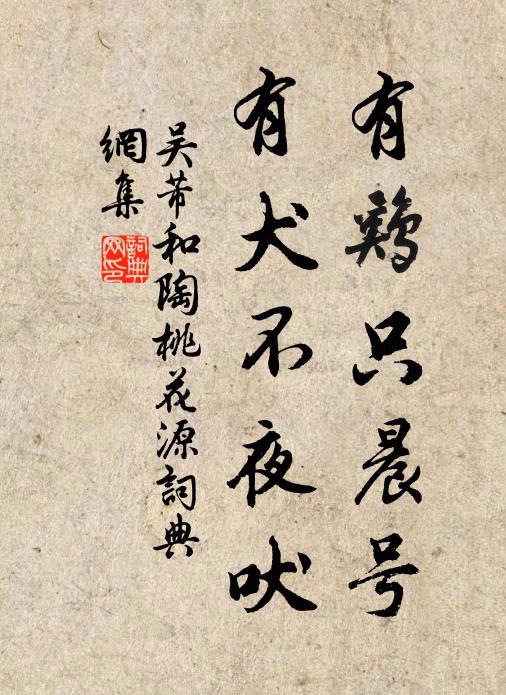 有鷄只晨号
有犬不夜吠
吴芾和陶桃花源詞典
網集
詞典
网印